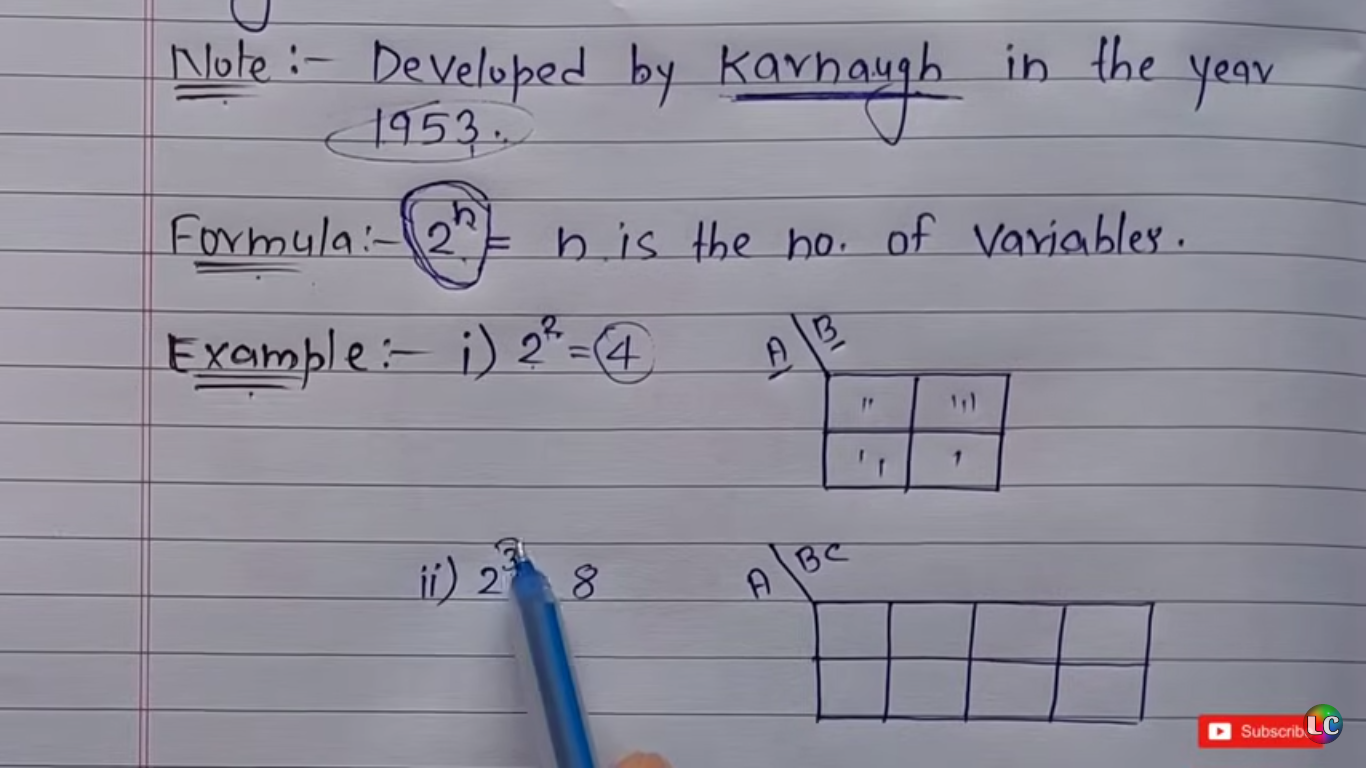 Note :- Developed by Karnaugh in the year
1953.
Formula:- 2^n = n is the no. of variables.
Example:- i) 2^2 = 4
A \ B
ii) 2^3 8
A \ BC
Subscribe
LC